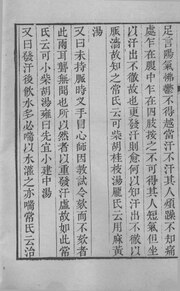 足言陽氣怫鬱不得越當汗不汗其人煩躁不知痛
處乍在腹中乍在四肢按之不可得其人短氣但坐
以汗出不徹故也更發汗則愈何以知汗出不徹以
脈濇故知之常氏云可柴胡桂枝湯龎氏云用麻黃
湯
又曰未持脈時叉手冒心師因教試令欬而不欬者
此兩耳聾無聞也所以然者以重發汗虛故如此常
氏云可小柴胡湯雍曰先宜小建中湯
又曰發汗後飲水多必喘以水灌之亦喘常氏云治